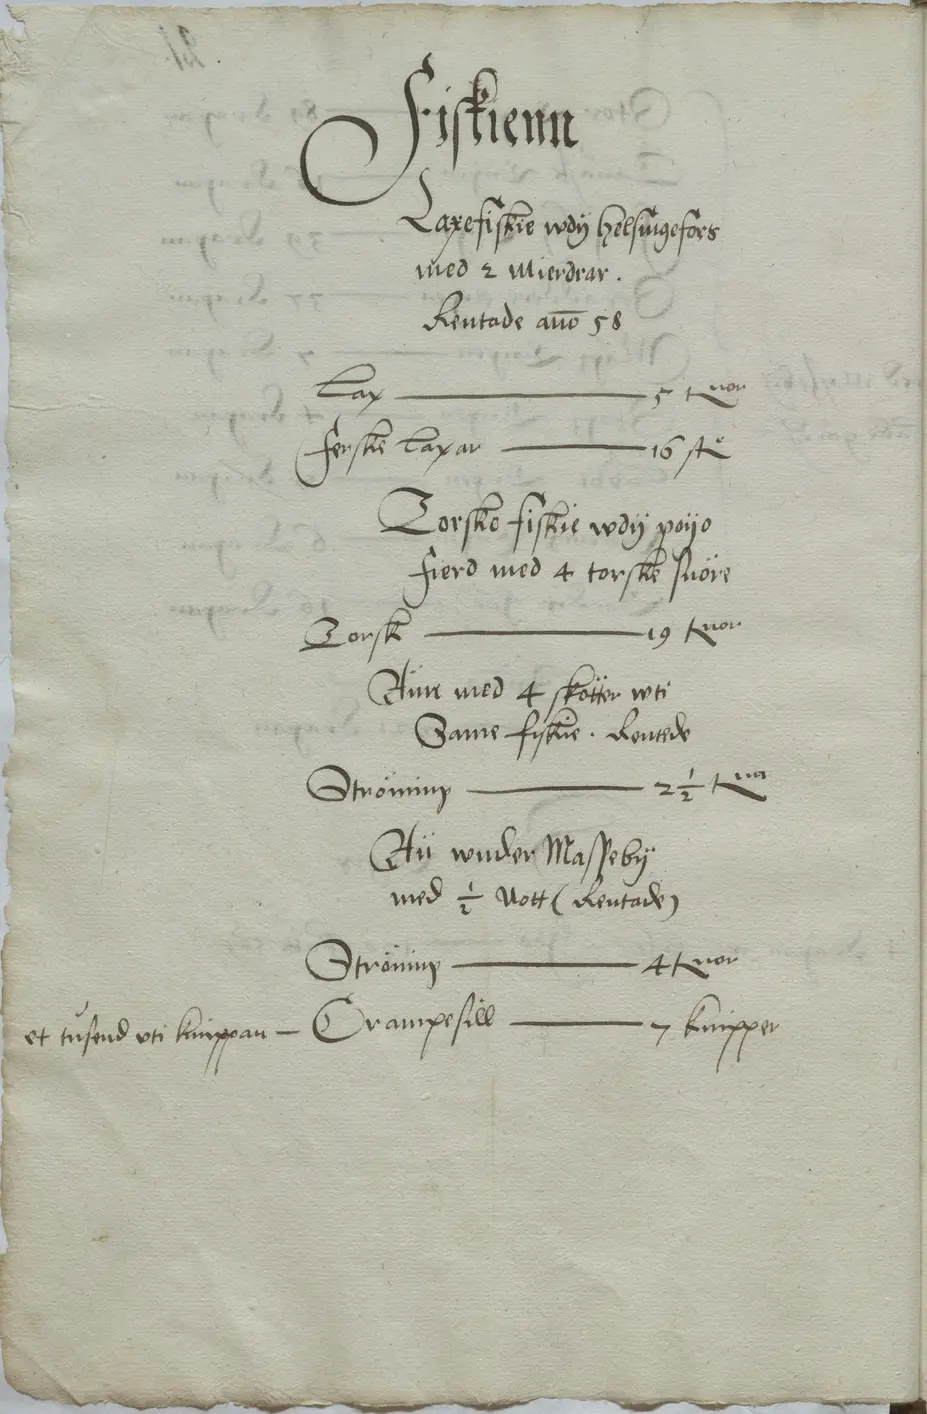 Fiskienn
Laxefiskie wdÿ helsingefors
med 2 Mierdrar.
Rentade año 58
Lax — 5 tunor
Ferske laxar — 16 st
Torske fiskie wdÿ poÿo
fierd med 4 torske snöre
Torsk — 19 tunor
Än med 4 skötter wti
Same fiskie. Rentede
Ströming — 2 1/2 tuna
Än wnder Masseby
med 1/2 Nott (Rentade)
Ströming — 4 tunor
et tusend vti knippan — Crampesill — 7 knipper